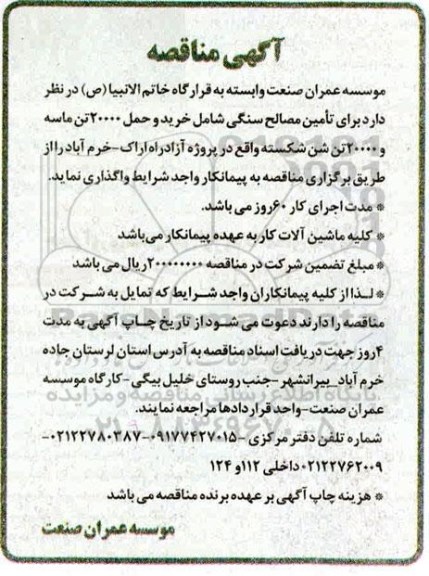 آگهی مناقصه
موسسه عمران صنعت وابسته به قرارگاه خاتم الانبیا (ص) در نظر
دارد برای تأمین مصالح سنگی شامل خرید و حمل ۲۰۰۰۰تن ماسه
و ۲۰۰۰۰تن شن شکسته واقع در پروژه آزادراه اراک-خرم آباد را از
طریق برگزاری مناقصه به پیمانکار واجد شرایط واگذاری نماید.
* مدت اجرای کار ۶۰روز می باشد.
* کلیه ماشین آلات کار به عهده پیمانکار می‌باشد
* مبلغ تضمین شرکت در مناقصه ۲۰۰۰۰۰۰۰۰ریال می باشد
* لـذا از کلیه پیمانکاران واجد شـرایط که تمایل به شـرکت در
مناقصه را دارند دعوت می شـود از تاریخ چـاپ آگهی به مدت
۴روز جهت دریافت اسناد مناقصه به آدرس استان لرستان جاده
خرم آباد_بیرانشهر -جنب روستای خلیل بیگی-کارگاه موسسه
عمران صنعت-واحد قراردادها مراجعه نمایند.
شماره تلفن دفتر مرکزی -۰۹۱۷۷۴۲۷۰۱۵-۰۲۱۲۲۷۸۰۳۸۷-
۰۲۱۲۲۷۶۲۰۰۹داخلی ۱۱۲و ۱۲۴
* هزینه چاپ آگهی بر عهده برنده مناقصه می باشد
موسسه عمران صنعت
ParsNamadData
پایگاه اطلاع رسانی مناقصه و مزایده
۰۲۱-۸۸۳۴۹۶۷۰-۵